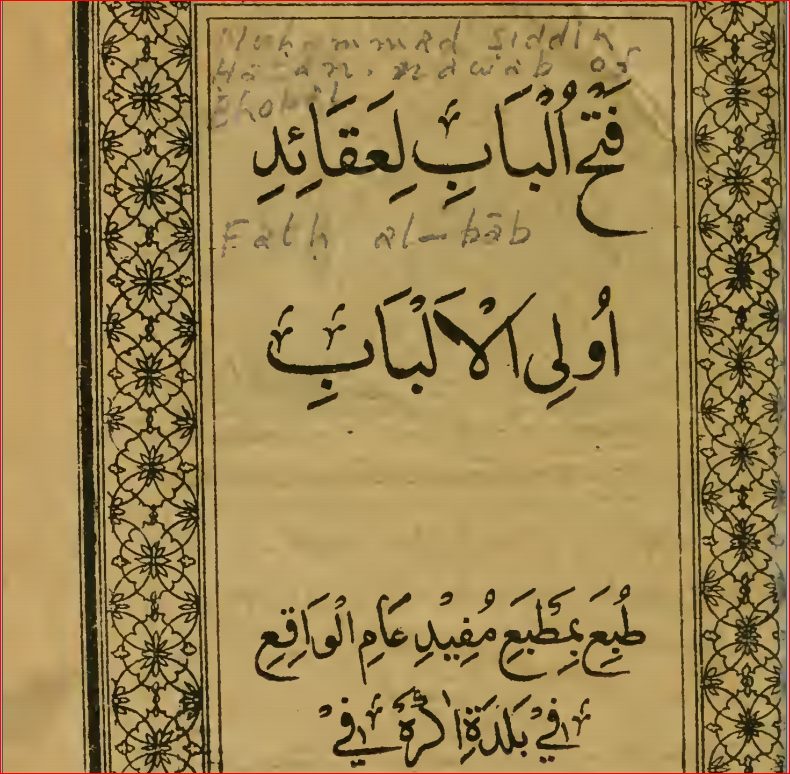 Muḥammad Ṣiddīḳ
Ḥasan, nawāb of
Bhopāl
فَتْحُ الْبَابِ لِعَقَائِدِ
Fatḥ al-bāb
اُولِی الْاَلْبَابِ
طُبِعَ بِمَطْبَعِ مُفِیْدِ عَامِ الْوَاقِعِ
فِیْ بَلْدَةِ اٰکرَهْ فِیْ